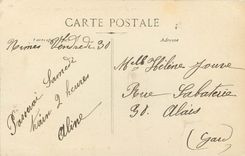 CARTE POSTALE
Correspondance
Adresse
Nimes Vendredi 30
Passerai Samedi
train 2 heures
Aline
Melle Hélène Jouve
Rue Sabaterie
30. Alais
(Gard)